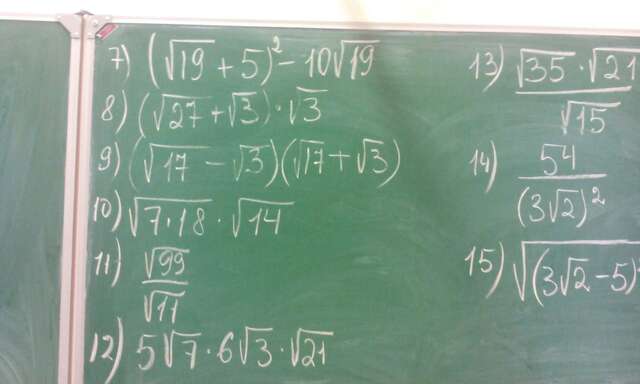 7) (√19 + 5)² - 10√19
8) (√27 + √3) · √3
9) (√17 - √3)(√17 + √3)
10) √7·18 · √14
11) √99 / √11
12) 5√7 · 6√3 · √21
13) √35 · √21 / √15
14) 54 / (3√2)²
15) √(3√2 - 5)²